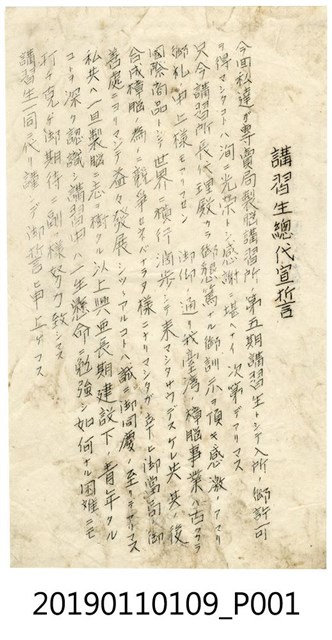 講習生總代宣誓言
今回私達ガ專賣局製腦講習所ノ第五期講習生トシテ入所ノ御許可
ヲ得マシタコトハ洵ニ光榮トシ感謝ニ堪ヘナイ次第デアリマス
只今講習所長代理殿ヨリ御懇篤ナル御訓示ヲ頂キ感激ノアマリ
御礼申上様モアリマセン 御訓ノ通リ我臺湾ノ樟腦事業ハ古クヨリ
國際商品トシテ世界ニ横行濶歩シテ来マシタサウデスケレ共其ノ後
合成樟腦ノ為ニ競争セネバナラヌ様ニナリマシタガ幸ヒ御當局ノ御
善處ニヨリマシテ益々發展シツヽアルコトハ誠ニ御同慶ノ至リデアリマス
私共ハ一旦製腦ニ志シ後クル以上興亜長期建設下ノ青年タル
コトヲ深ク認識シ講習中ハ一生懸命ニ勉強シ如何ナル困難ニモ
打チ克チ御期待ニ副フ様努力致シマス
講習生一同ニ代リ謹ンデ御誓ヒ申上ゲマス
20190110109_P001